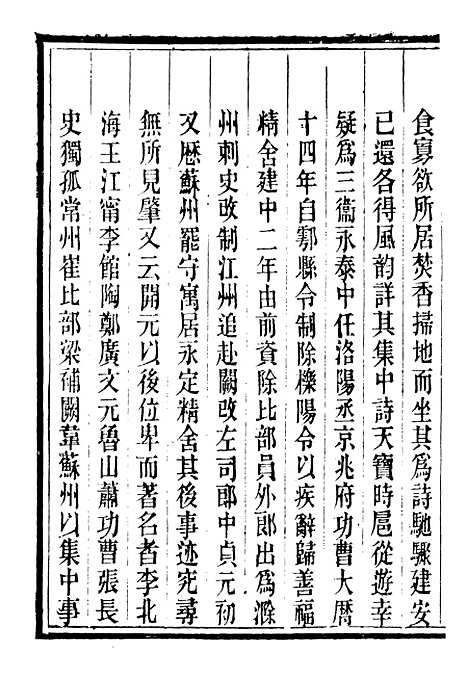 食寡欲所居焚香掃地而坐其爲詩馳驟建安
已還各得風韵詳其集中詩天寶時扈從遊幸
疑爲三衞永泰中任洛陽丞京兆府功曹大曆
十四年自鄠縣令制除櫟陽令以疾辭歸善福
精舍建中二年由前資除比部員外郎出爲滁
州刺史改制江州追赴闕改左司郎中貞元初
又歷蘇州罷守寓居永定精舍其後事迹究尋
無所見肇又云開元以後位卑而著名者李北
海王江甯李館陶鄭廣文元魯山蕭功曹張長
史獨孤常州崔比部梁補闕韋蘇州以集中事